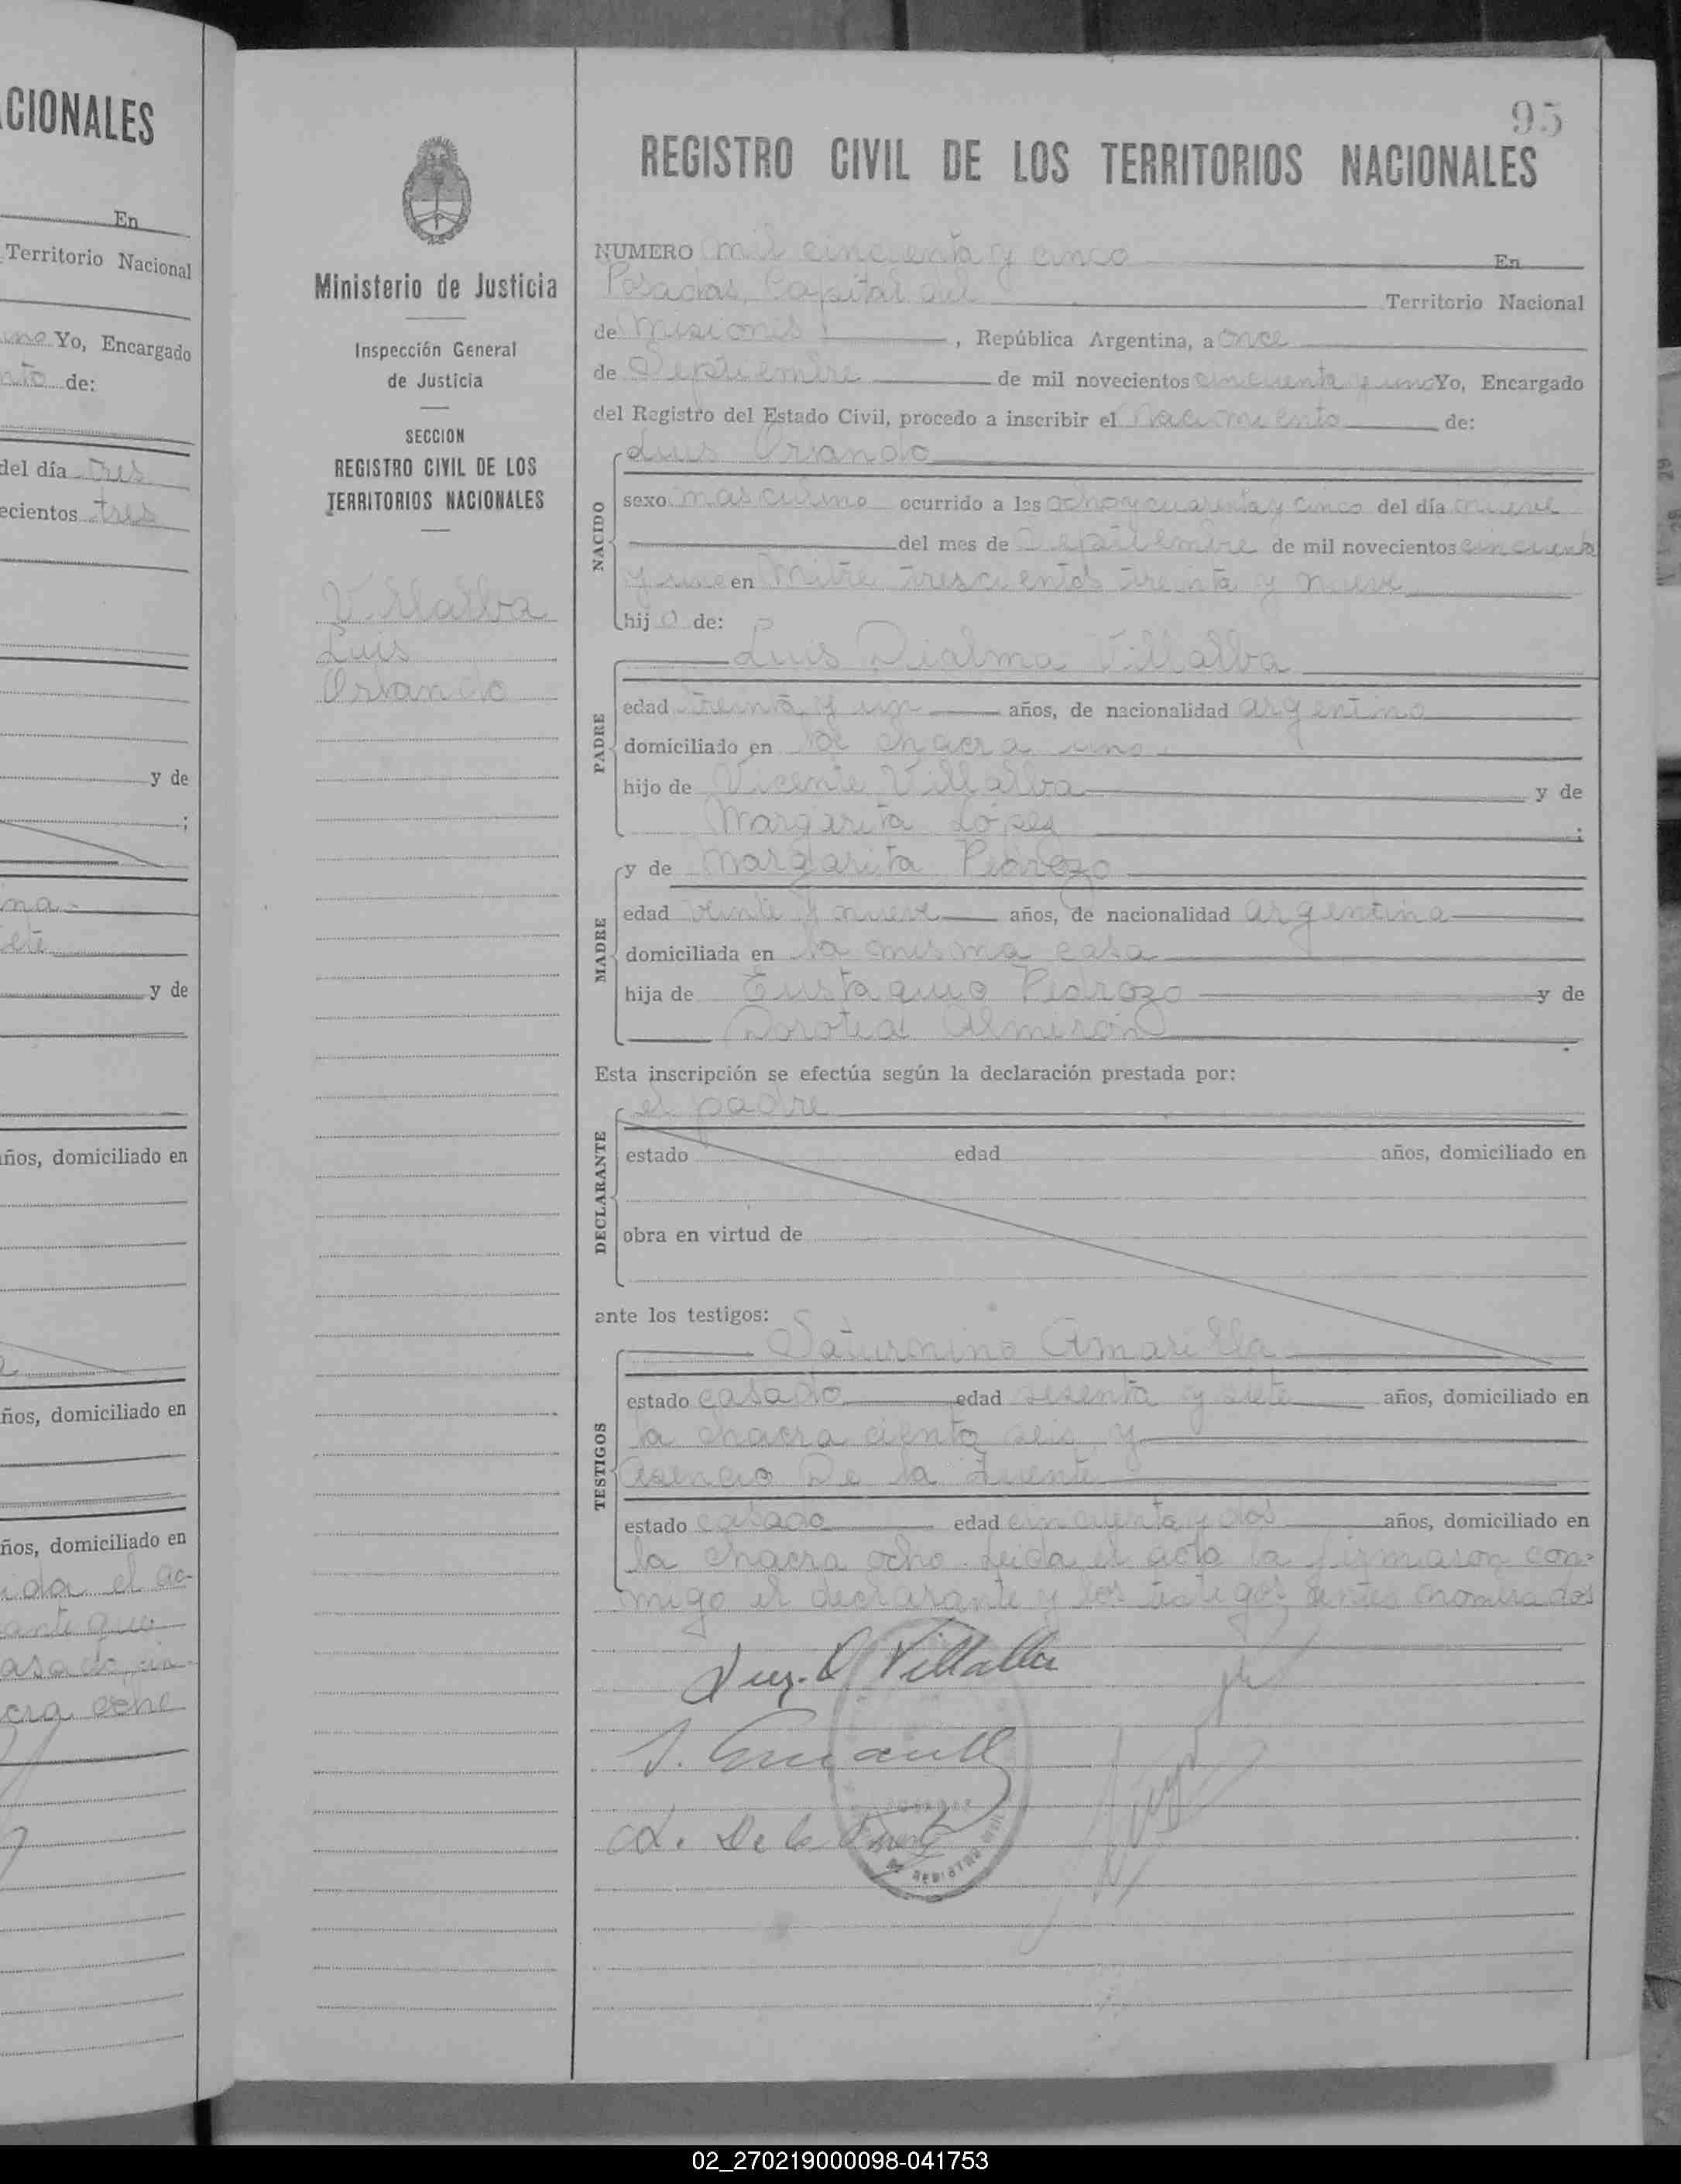 CIONALES
En
Territorio Nacional
Yo, Encargado
de:
del día tres
ecientos tres
y de
;
na
y de
años, domiciliado en
ños, domiciliado en
ños, domiciliado en
ida el ac-
ante que
cra ocho
Ministerio de Justicia
Inspección General
de Justicia
SECCION
REGISTRO CIVIL DE LOS
TERRITORIOS NACIONALES
Villalba
Luis
Orlando
95
REGISTRO CIVIL DE LOS TERRITORIOS NACIONALES
NUMERO mil cincuenta y cinco En
Posadas, Capital del Territorio Nacional
de Misiones, República Argentina, a once
de Septiembre de mil novecientos cincuenta y uno Yo, Encargado
del Registro del Estado Civil, procedo a inscribir el nacimiento de:
Luis Orlando
NACIDO
sexo masculino ocurrido a las ocho y cuarenta y cinco del día nueve
del mes de Septiembre de mil novecientos cincuenta
y uno en Mitre trescientos treinta y nueve
hijo de:
Luis Dialma Villalba
PADRE
edad treinta y un años, de nacionalidad argentino
domiciliado en la chacra uno
hijo de Vicente Villalba y de
Margarita López ;
y de Margarita Pedrozo
MADRE
edad veinte y nueve años, de nacionalidad argentina
domiciliada en la misma casa
hija de Eustaquio Pedrozo y de
Dorotea Almirón .
Esta inscripción se efectúa según la declaración prestada por:
el padre
DECLARANTE
estado edad años, domiciliado en
obra en virtud de
ante los testigos:
Saturnino Amarilla
TESTIGOS
estado casado edad sesenta y siete años, domiciliado en
la chacra ciento seis y
Asencio De la Fuente
estado casado edad cincuenta y dos años, domiciliado en
la chacra ocho. Leida el acta la firmaron con-
migo el declarante y los testigos antes nombrados
Villalba
A. De la Fuente
02_270219000098-041753